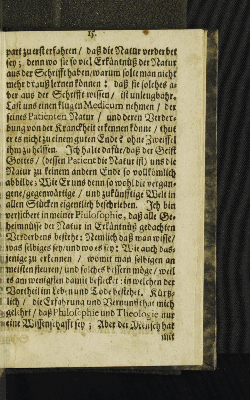 15.
part zu erst erfahren / daß die Natur verderbet
sey ; denn wo sie so viel Erkäntnüß der Natur
aus der Schrifft haben / warum solte man nicht
mehr draus lernen können : daß sie solches a-
ber aus der Schrifft wissen / ist unleugbahr.
Last uns einen klugen Medicum nehmen / der
seines Patienten Natur / und deren Verder-
bung von der Kranckheit erkennen könne / thut
er es nicht zu einem guten Ende ? ohne Zweiffel
ihm zu helffen. Ich halt dafür / daß der Geist
Gottes / (dessen Patient die Natur ist) uns die
Natur zu keinem andern Ende so vollkömlich
abbilde : Wie Er uns denn so wohl die vergan-
gene / gegenwärtige / und zukünfftige Welt in
allen Stücken eigentlich beschrieben. Ich bin
versichert in meiner Philosophie, daß alle Ge-
heimnüsse der Natur in Erkäntnüß gedachten
Verderbens bestehe : Nemlich daß man wisse /
was selbiges sey / und wo es sey : Wie auch das-
jenige zu erkennen / womit man selbigen am
meisten steuren / und solches bessern möge / weil
es am wenigsten damit beflecket : in welchen der
Vortheil im Leben und Tode bestehet. Kürtz-
lich / die Erfahrung und Vernunfft hat mich
gelehrt / daß Philosophie und Theologie nur
eine Wissenschafft sey ; Aber der Mensch hat
mit